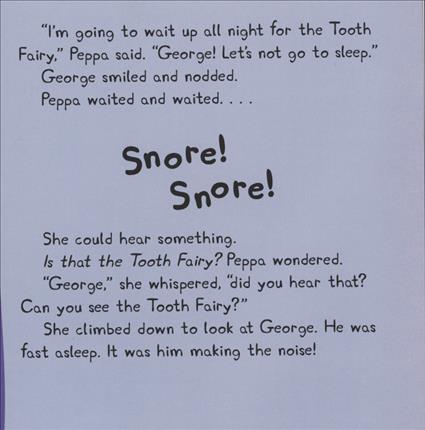 “I’m going to wait up all night for the Tooth
Fairy,” Peppa said. “George! Let’s not go to sleep.”
George smiled and nodded.
Peppa waited and waited. . . .
Snore!
Snore!
She could hear something.
Is that the Tooth Fairy? Peppa wondered.
“George,” she whispered, “did you hear that?
Can you see the Tooth Fairy?”
She climbed down to look at George. He was
fast asleep. It was him making the noise!